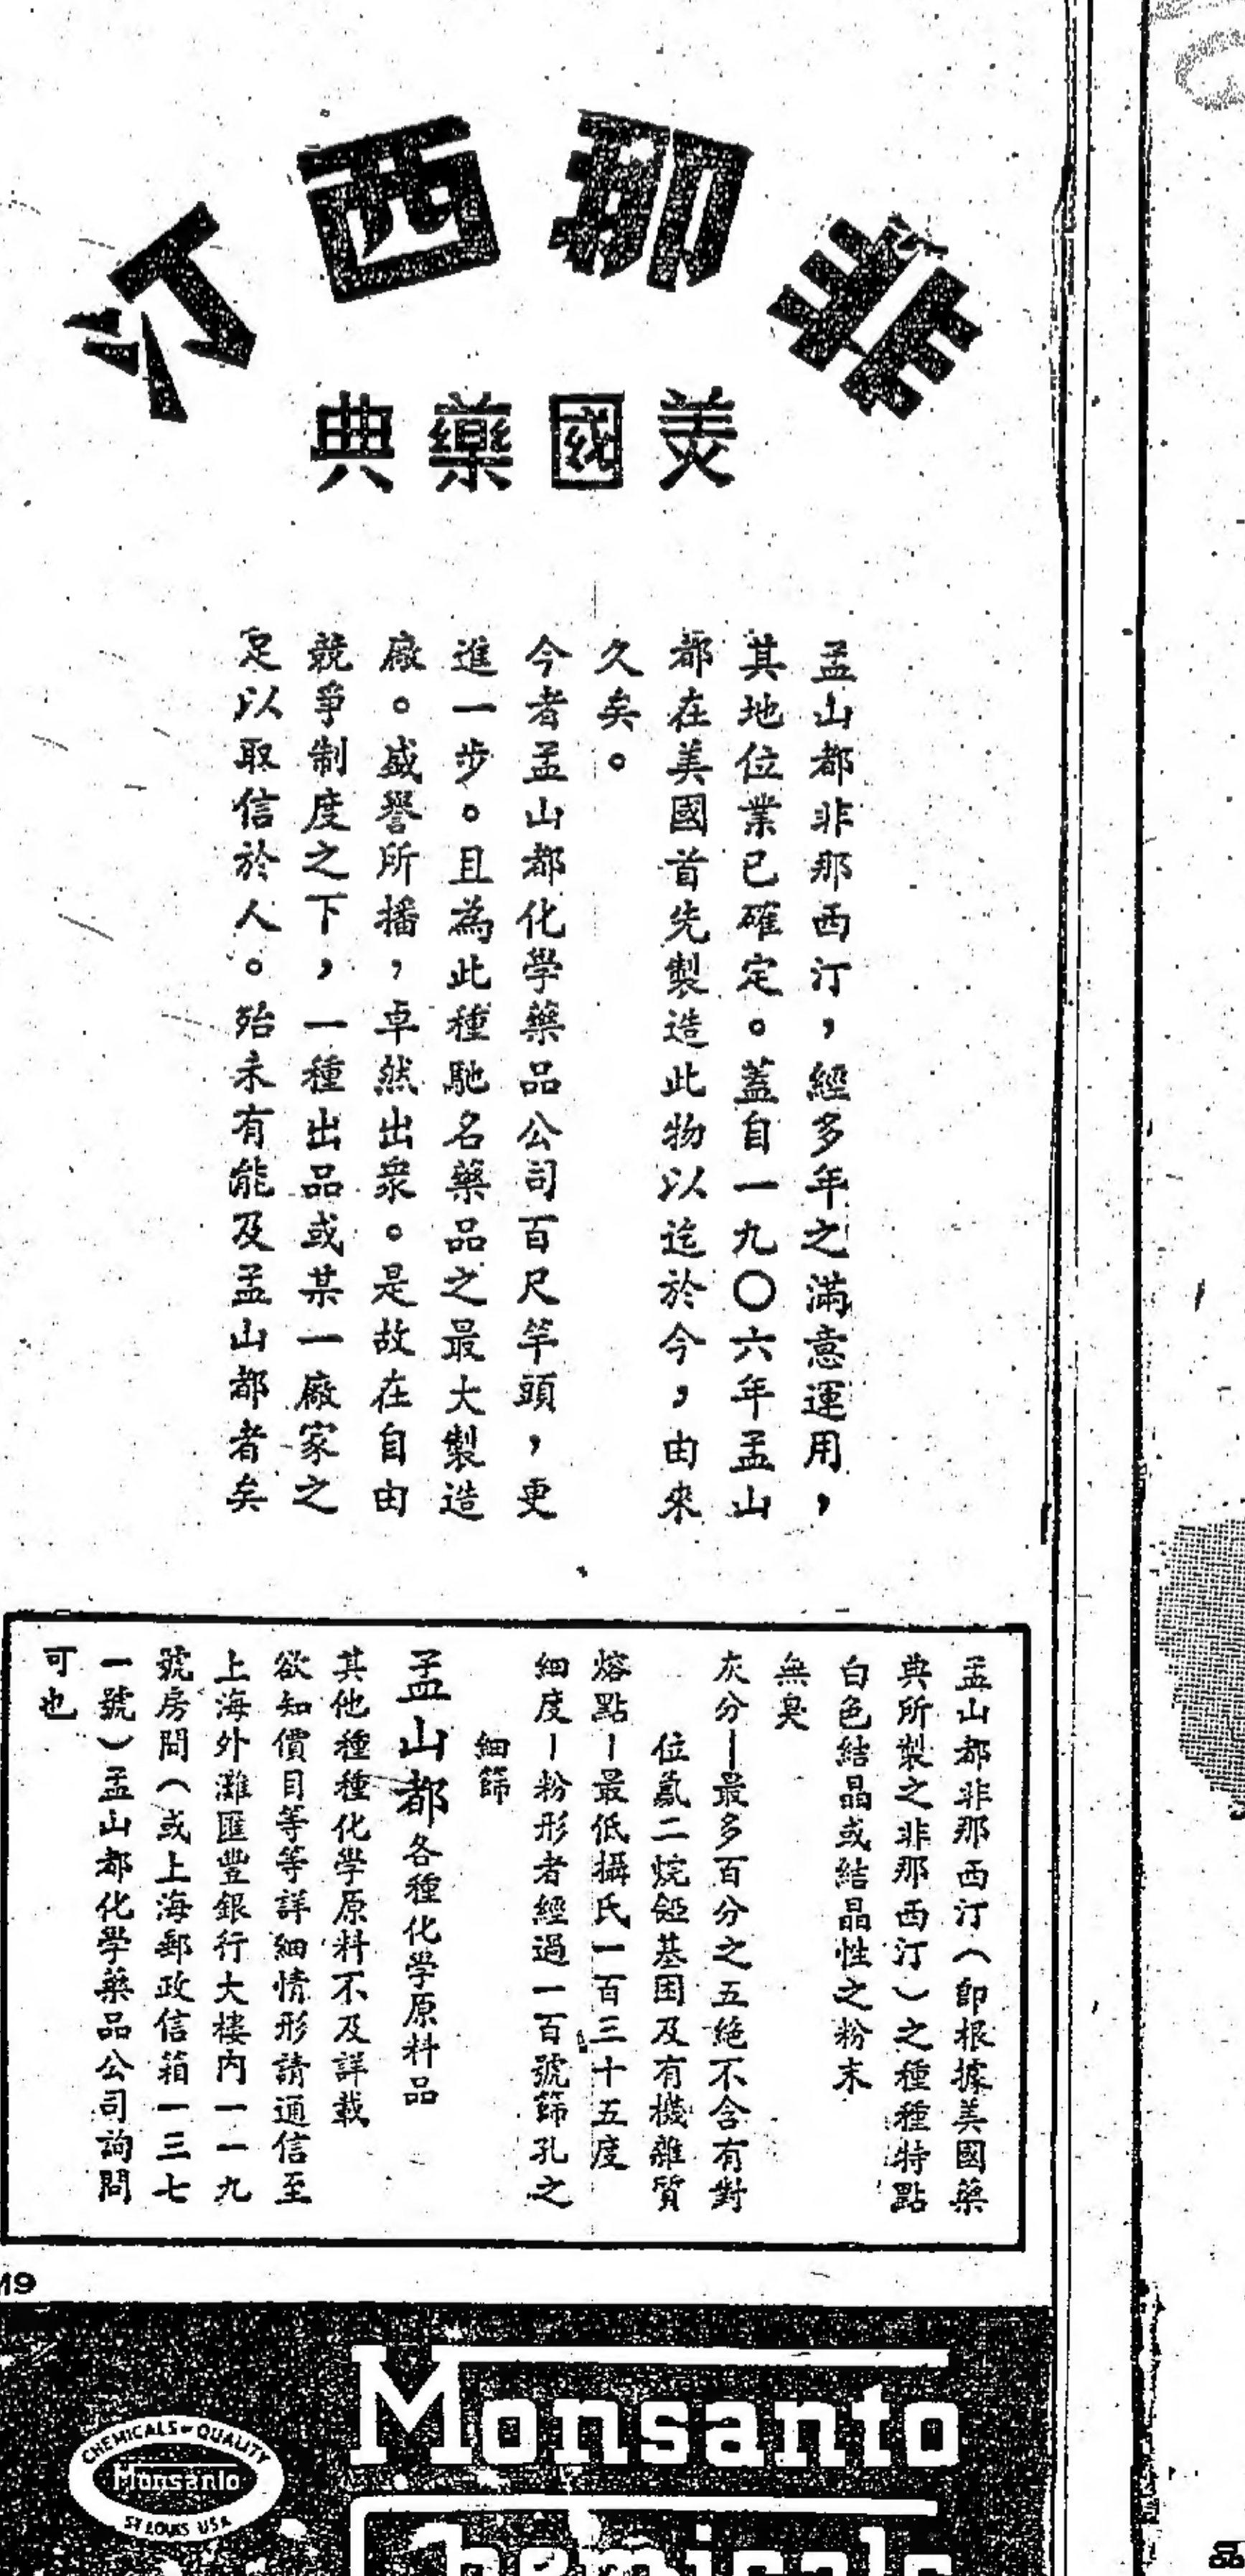 非那西汀
美國藥典
孟山都非那西汀，經多年之滿意運用，
其地位業已確定。蓋自一九〇六年孟山
都在美國首先製造此物以迄於今，由來
久矣。
今者孟山都化學藥品公司百尺竿頭，更
進一步。且為此種馳名藥品之最大製造
廠。盛譽所播，卓然出衆。是故在自由
競爭制度之下，一種出品或某一廠家之
足以取信於人。殆未有能及孟山都者矣
孟山都非那西汀（即根據美國藥
典所製之非那西汀）之種種特點
白色結晶或結晶性之粉末
無臭
灰分—最多百分之五絕不含有對
位氯二烷 基困及有機雜質
熔點—最低攝氏一百三十五度
細度—粉形者經過一百號篩孔之
細篩
孟山都各種化學原料品
其他種種化學原料不及詳載
欲知價目等等詳細情形請通信至
上海外灘匯豐銀行大樓內一一九
號房間（或上海郵政信箱一三七
一號）孟山都化學藥品公司詢問
可也
M9
Monsanto
Chemicals
CHEMICALS OF QUALITY
Monsanto
ST LOUIS USA
品